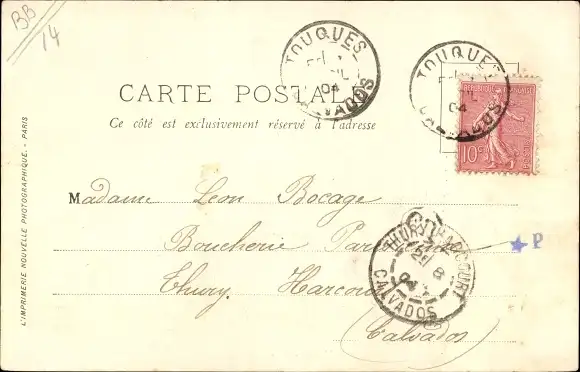 BB
14
TOUQUES
04
CALVADOS
TOUQUES
04
CALVADOS
CARTE POSTALE
Ce côté est exclusivement réservé à l'adresse
REPUBLIQUE FRANÇAISE
10c
Madame Léon Bocage
Boucherie
Thury Harcourt
(Calvados)
THURY-HARCOURT
8
04
CALVADOS
P
L'IMPRIMERIE NOUVELLE PHOTOGRAPHIQUE. - PARIS